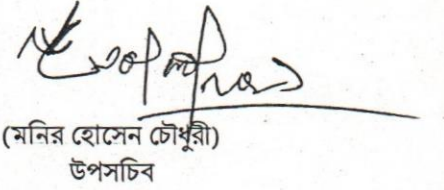 (মনির হোসেন চৌধুরী)
উপসচিব